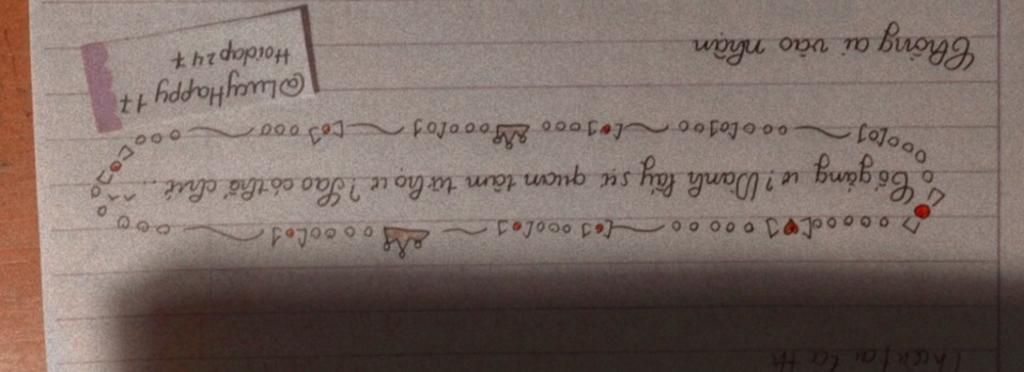 Cố gắng ư? Dành lấy sự quan tâm từ họ ư? Sao có thể chứ ...
@LucyHappy17
Hoidap247
Không ai vào nhận